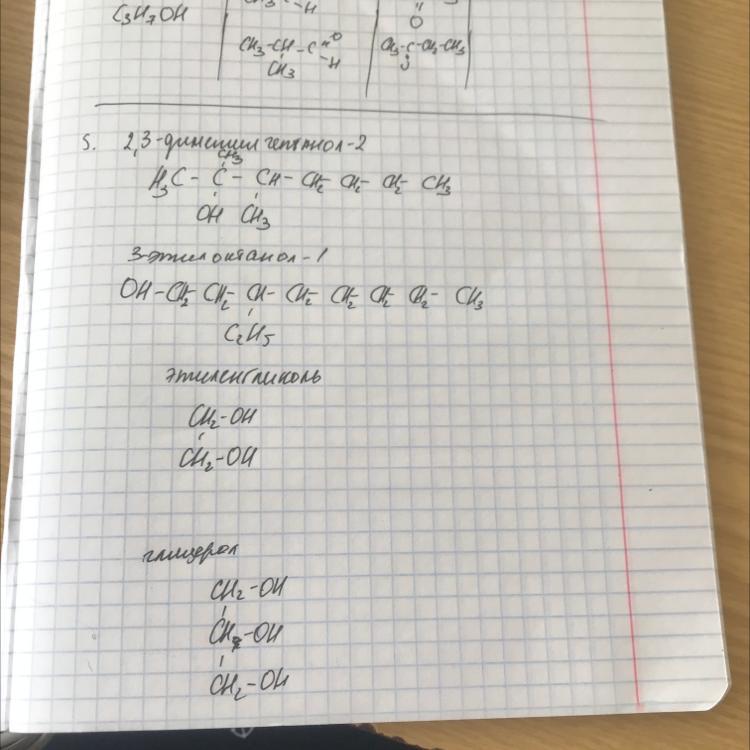 CH₃
C₃H₇OH
O
CH₃-CH-C=O
-H
CH₃
CH₃-C-CH₂-CH₃
5. 2,3-диметилгептанол-2
CH₃
H₃C - C - CH - CH₂ - CH₂ - CH₂ - CH₃
OH CH₃
3-этилоктанол-1
OH-CH₂-CH₂-CH-CH₂-CH₂-CH₂-CH₂-CH₃
C₂H₅
этиленгликоль
CH₂-OH
CH₂-OH
глицерол
CH₂-OH
CH-OH
CH₂-OH